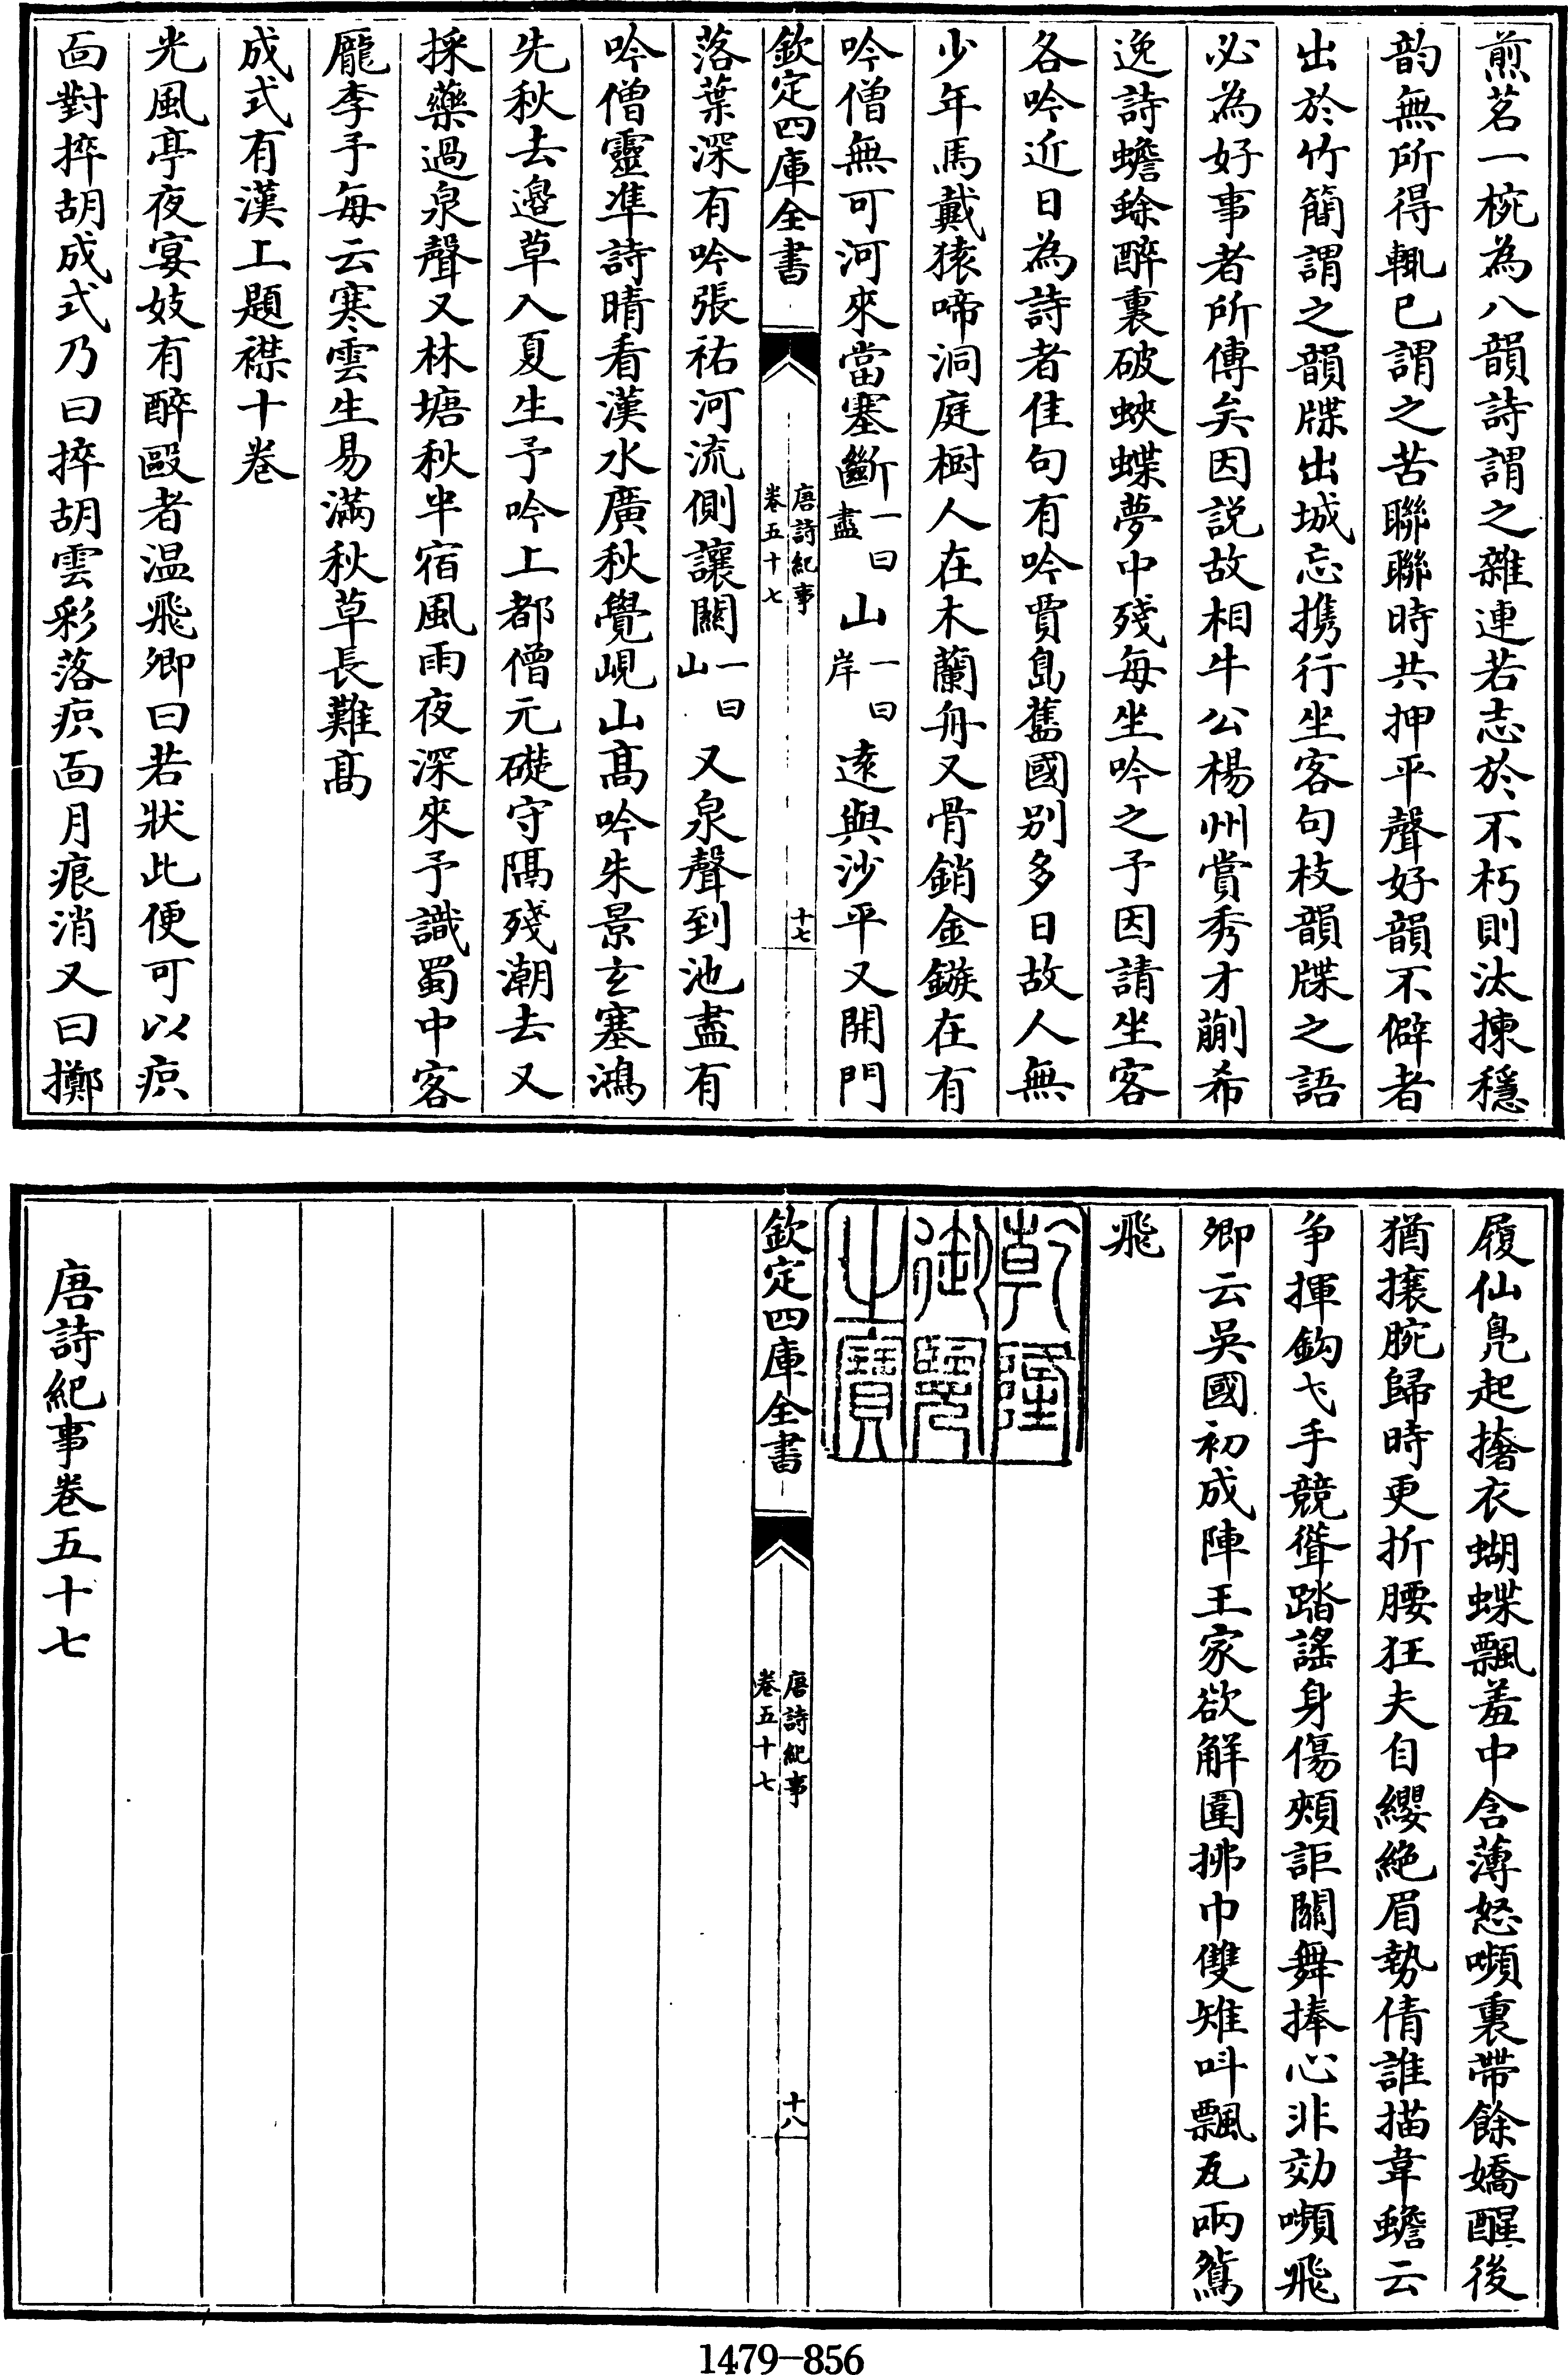 煎茗一椀為八韻詩謂之雜連若志於不朽則汰揀穩
韵無所得輒已謂之苦聯聯時共押平聲好韻不僻者
出於竹簡謂之韻牒出城忘携行坐客句枝韻牒之語
必為好事者所傳矣因説故相牛公楊州賞秀才蒯希
逸詩蟾蜍醉裏破蛺蝶夢中殘每坐吟之予因請坐客
各吟近日為詩者佳句有吟賈島舊國别多日故人無
少年馬戴猿啼洞庭樹人在木蘭舟又骨銷金鏃在有
吟僧無可河來當塞斷一曰盡山一曰岸遠與沙平又開門
欽定四庫全書
唐詩紀事
卷五十七
十七
落葉深有吟張祐河流側讓關一曰山又泉聲到池盡有
吟僧靈準詩晴看漢水廣秋覺峴山髙吟朱景玄塞鴻
先秋去邉草入夏生予吟上都僧元礎守隔殘潮去又
採藥過泉聲又林塘秋半宿風雨夜深來予識蜀中客
龎李予每云寒雲生易滿秋草長難髙
成式有漢上題襟十卷
光風亭夜宴妓有醉毆者温飛卿曰若狀此便可以疻
面對捽胡成式乃曰捽胡雲彩落疻面月痕消又曰擲
履仙鳬起撦衣蝴蝶飄羞中含薄怒嚬裏帶餘嬌醒後
猶攘腕歸時更折腰狂夫自纓絶眉勢倩誰描韋蟾云
争揮鈎弋手競聳踏謡身傷頰詎關舞捧心非効嚬飛
卿云吳國初成陣王家欲解圍拂巾雙雉呌飄瓦兩鴛
飛
乾隆御覽之寶
欽定四庫全書
唐詩紀事
卷五十七
十八
唐詩紀事卷五十七
1479-856